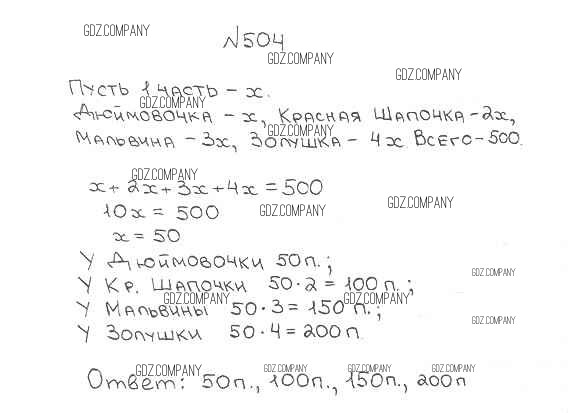 GDZ.COMPANY
N504
GDZ.COMPANY
GDZ.COMPANY
Пусть 1 часть - x.
GDZ.COMPANY
Дюймовочка - x, Красная Шапочка - 2x,
GDZ.COMPANY
Мальвина - 3x, Золушка - 4x Всего - 500.
GDZ.COMPANY
x + 2x + 3x + 4x = 500
GDZ.COMPANY
10x = 500
GDZ.COMPANY
x = 50
У Дюймовочки 50п.;
GDZ.COMPANY
У Кр. Шапочки 50·2 = 100 п.;
GDZ.COMPANY GDZ.COMPANY
У Мальвины 50·3 = 150 п.;
GDZ.COMPANY
У Золушки 50·4 = 200п.
GDZ.COMPANY GDZ.COMPANY GDZ.COMPANY GDZ.COMPANY
Ответ: 50п., 100п., 150п., 200п